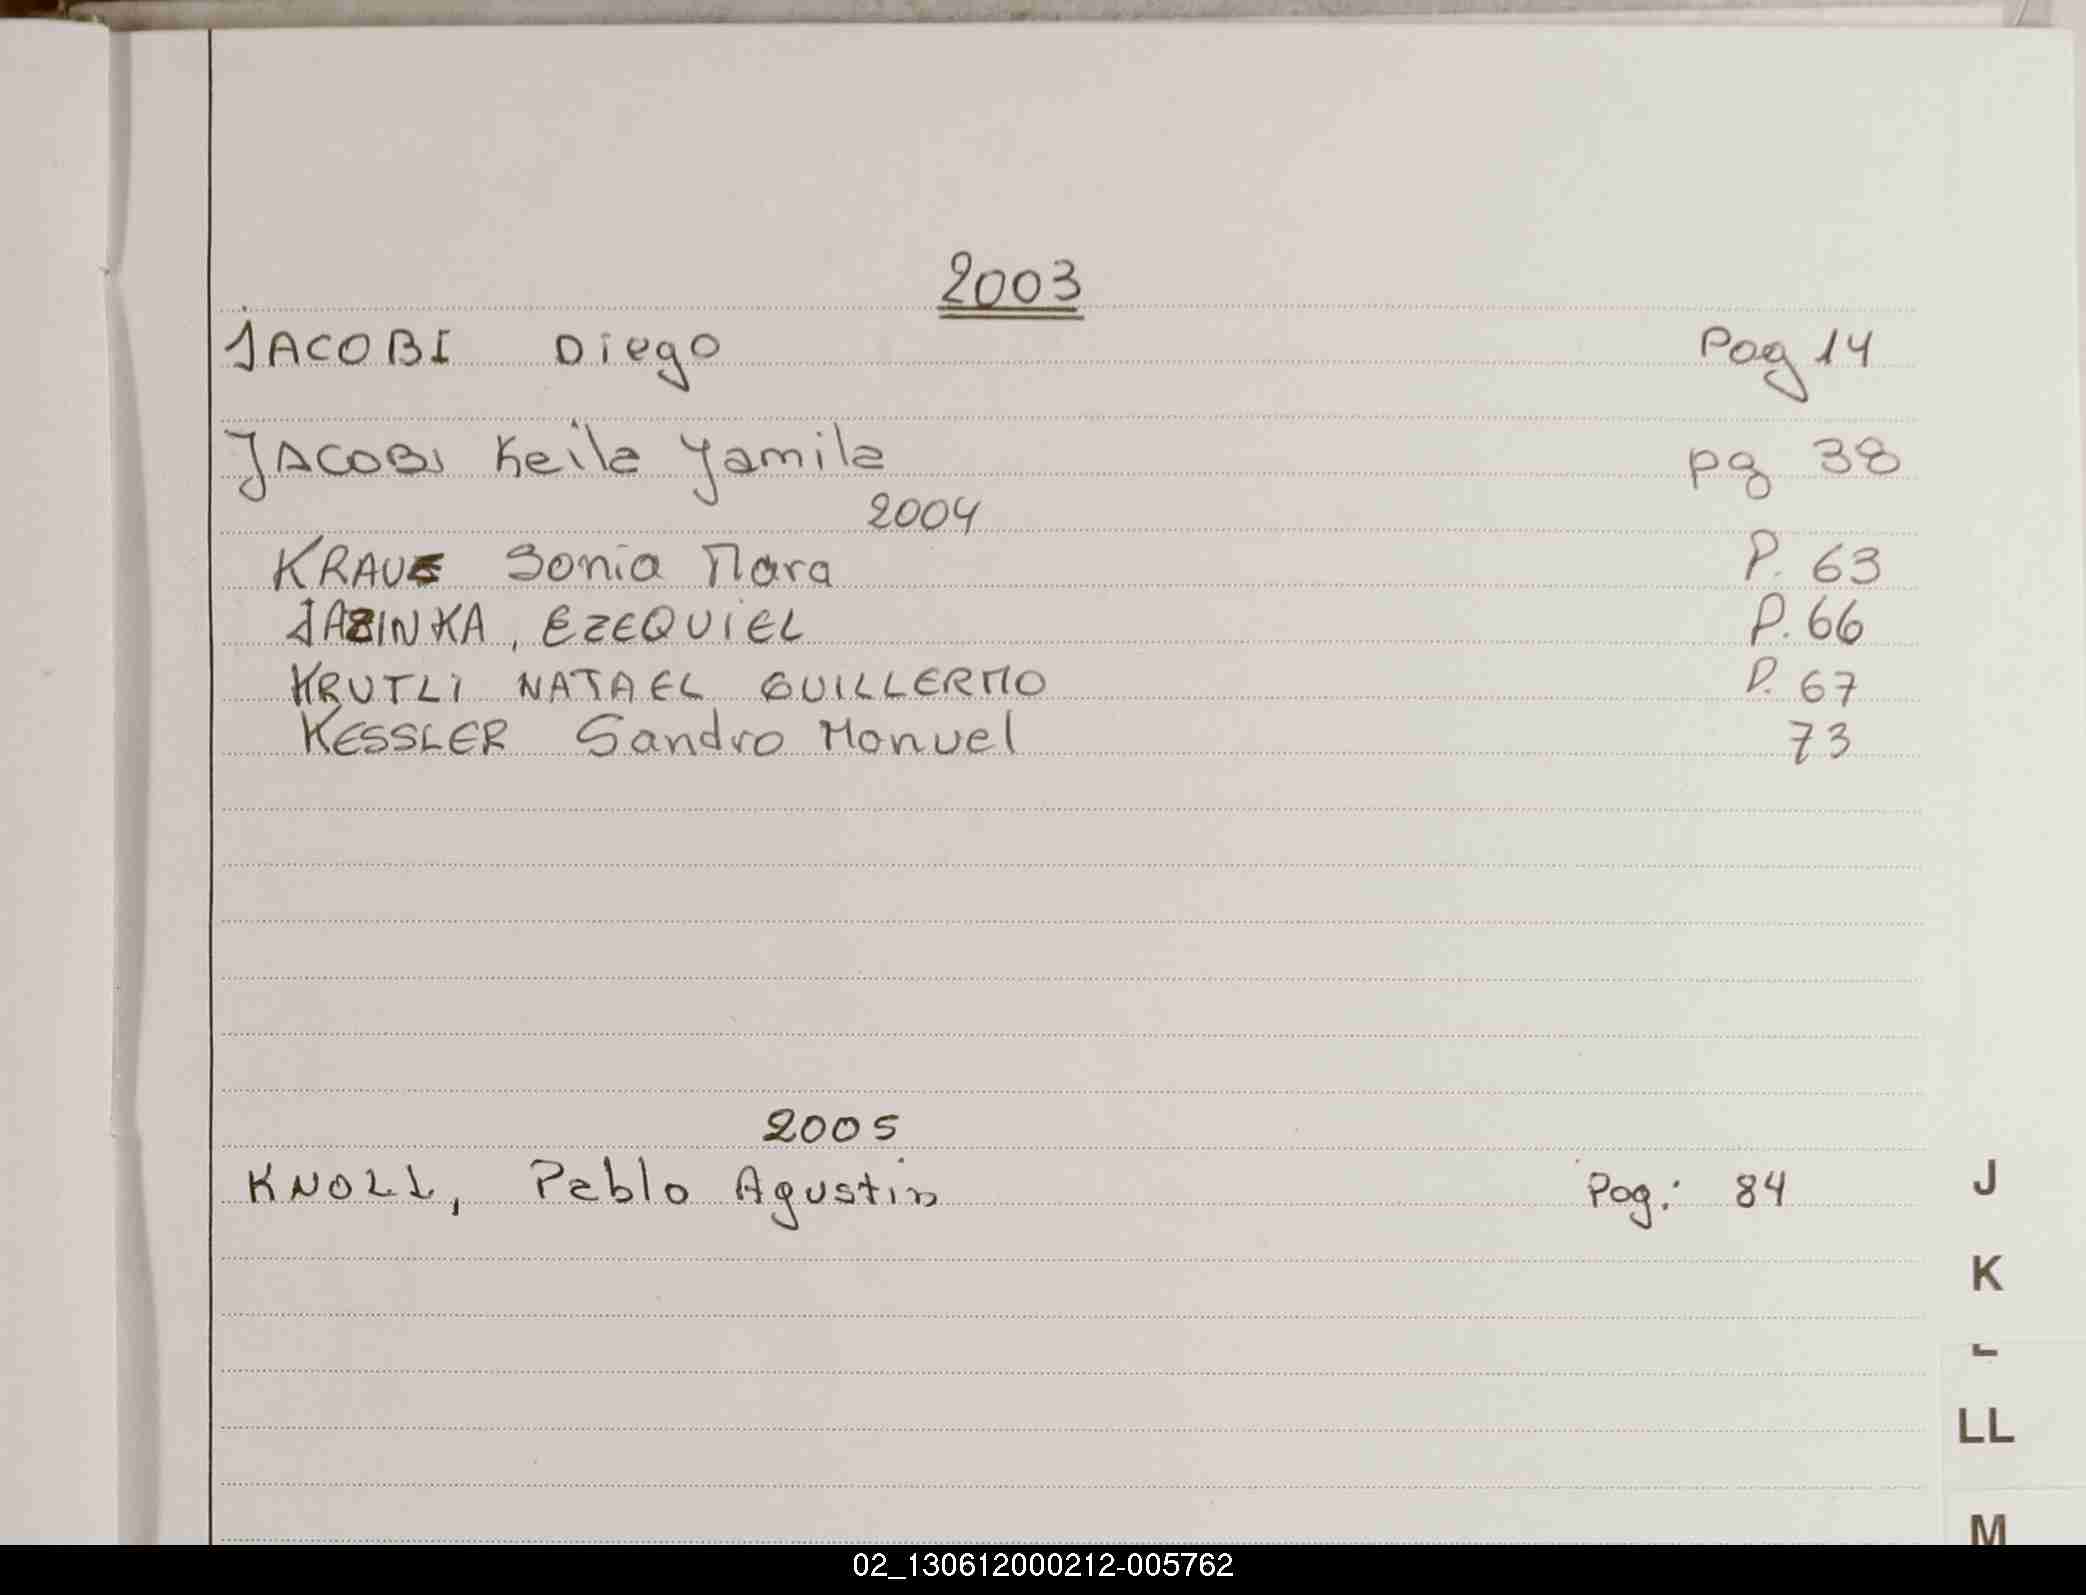 2003
JACOBI Diego Pag 14
JACOBI Keila Yamila pg 38
2004
KRAUS Sonia Mara P. 63
JAZINKA, EZEQUIEL P. 66
KRUTLI NATAEL GUILLERMO P. 67
KESSLER Sandro Manuel 73
2005
KNOLL, Pablo Agustin Pag: 84
J
K
L
LL
M
02_130612000212-005762